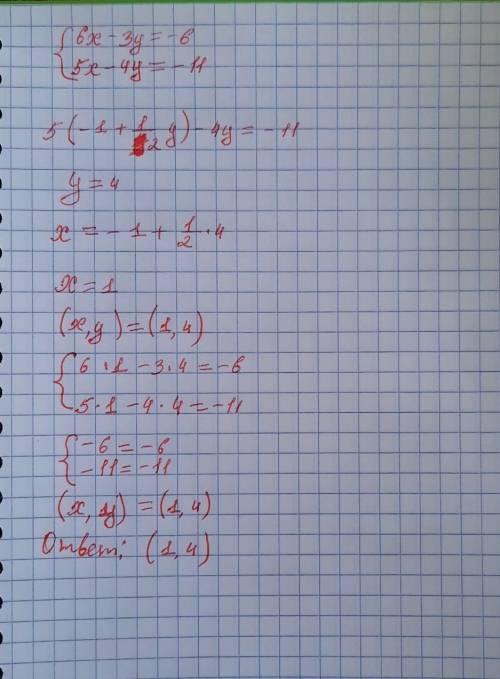 { 6x - 3y = -6
5x - 4y = -11
5(-1 + 1/2 y) - 4y = -11
y = 4
x = -1 + 1/2 · 4
x = 1
(x, y) = (1, 4)
{ 6 · 1 - 3 · 4 = -6
5 · 1 - 4 · 4 = -11
{ -6 = -6
-11 = -11
(x, y) = (1, 4)
Ответ; (1, 4)